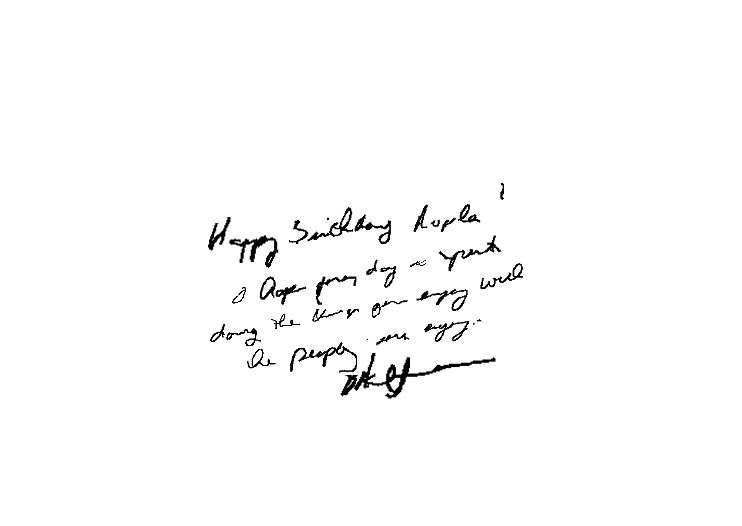 Happy Birthday
I hope your day is spent
doing the things you enjoy with
the people you enjoy.